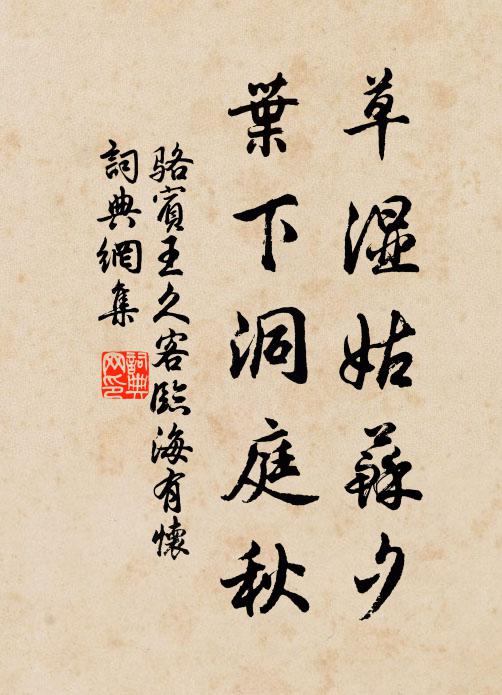 草湿姑蘇夕
葉下洞庭秋
駱賓王久客臨海有懷
詞典網集
詞典网印